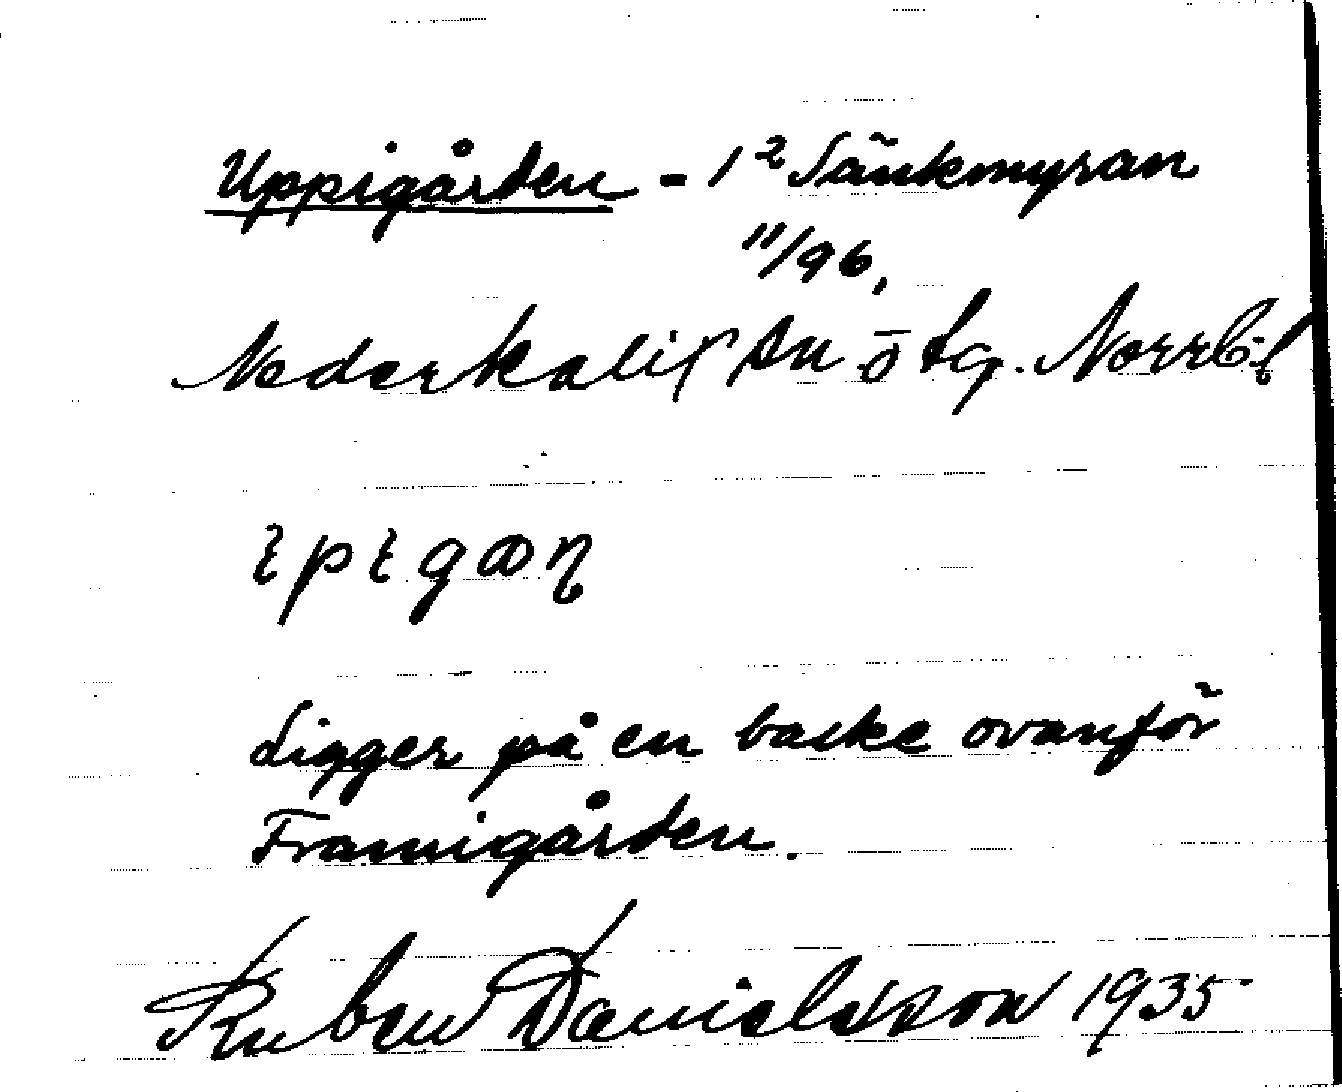 Uppigården - 1² Sänkmyran
11/96,
Nederkalix sn ö tg. Norrb. l
Ligger på en backe ovanför
Framigården.
Ruben Danielsson 1935